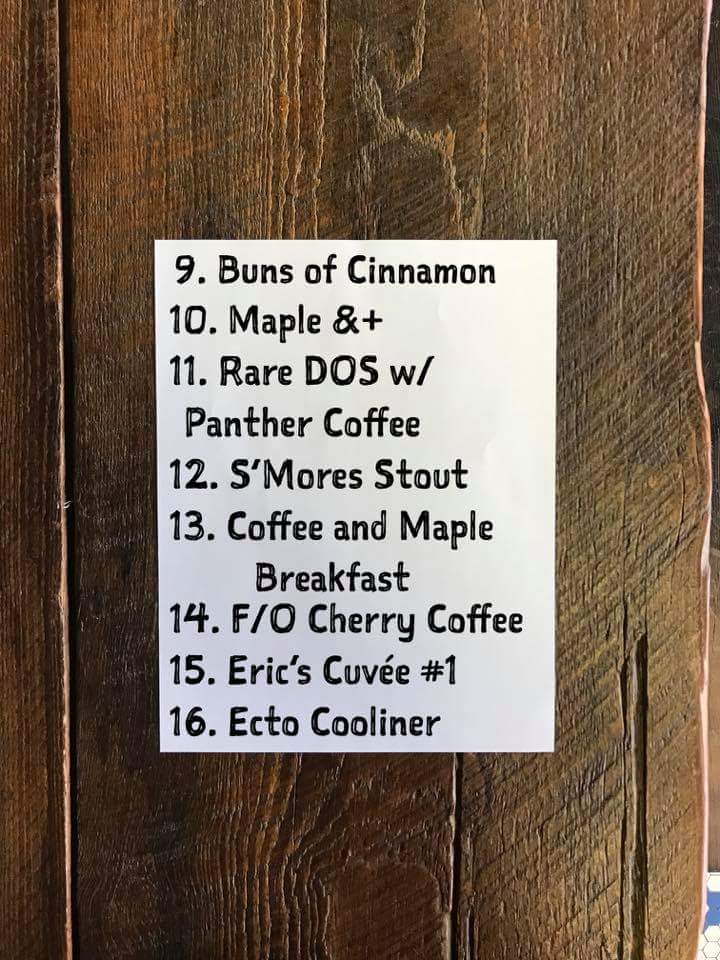 9. Buns of Cinnamon
10. Maple &+
11. Rare DOS w/
Panther Coffee
12. S'Mores Stout
13. Coffee and Maple
Breakfast
14. F/O Cherry Coffee
15. Eric's Cuvée #1
16. Ecto Cooliner